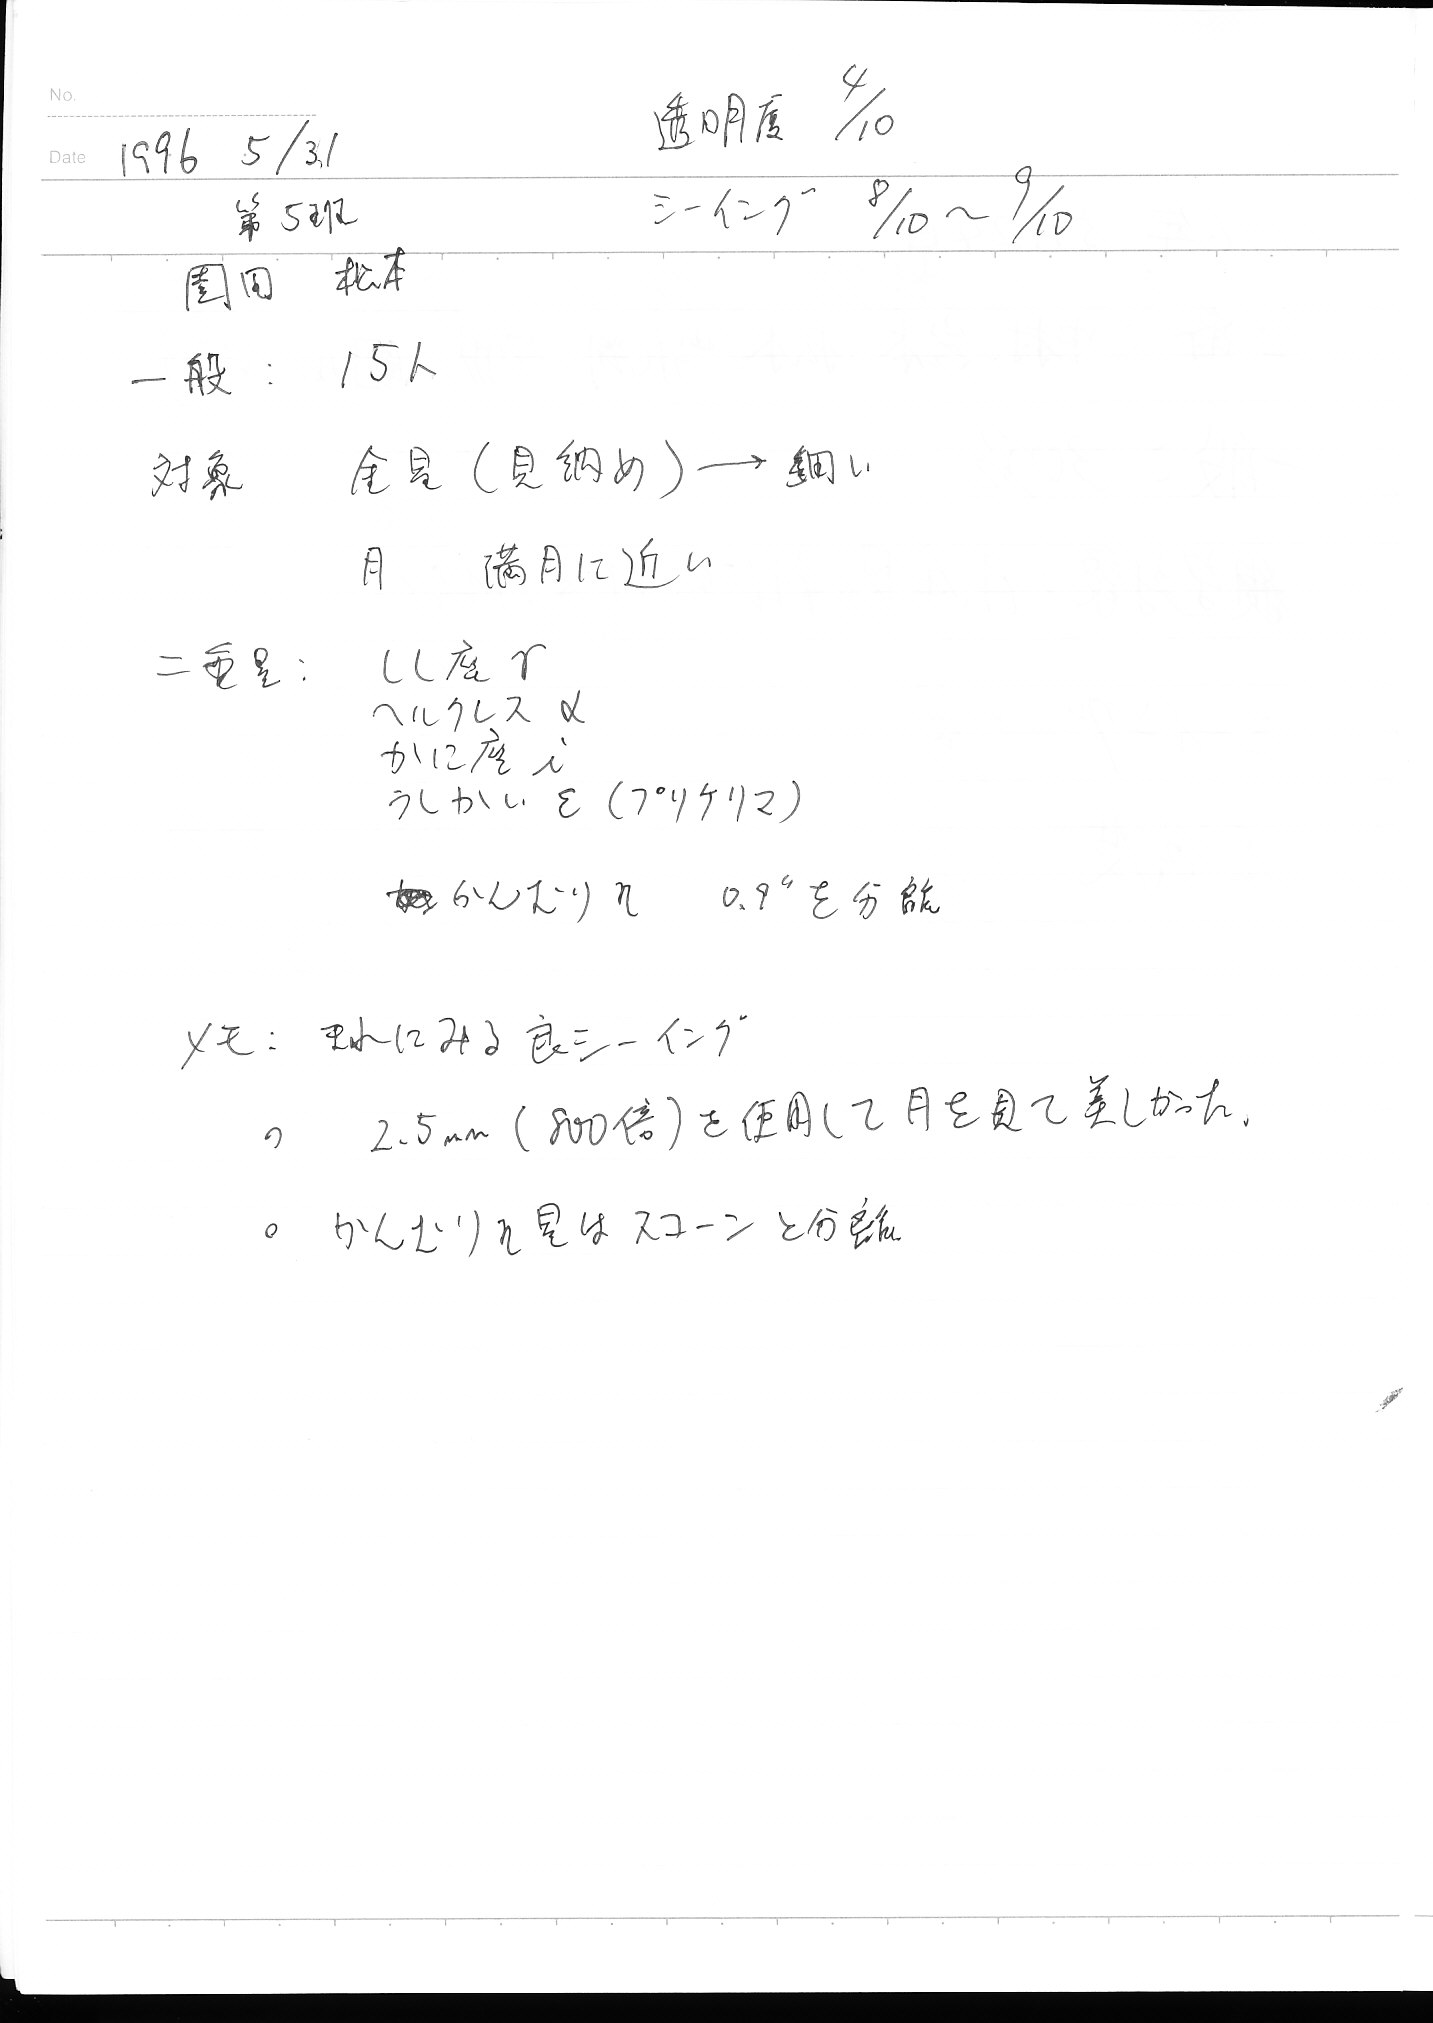 No.
透明度 4/10
Date 1996 5/31
シーイング 8/10～9/10
第5班
園田 松本
一般: 15人
対象 金星(見納め)→細い
月 満月に近い
二重星: しし座γ
ヘルクレスα
かに座i
うしかいε(プリケリマ)
かんむりη 0.9"を分離
メモ: まれにみる良シーイング
○ 2.5mm(800倍)を使用して月を見て美しかった.
○ かんむりη星はスコーンと分離